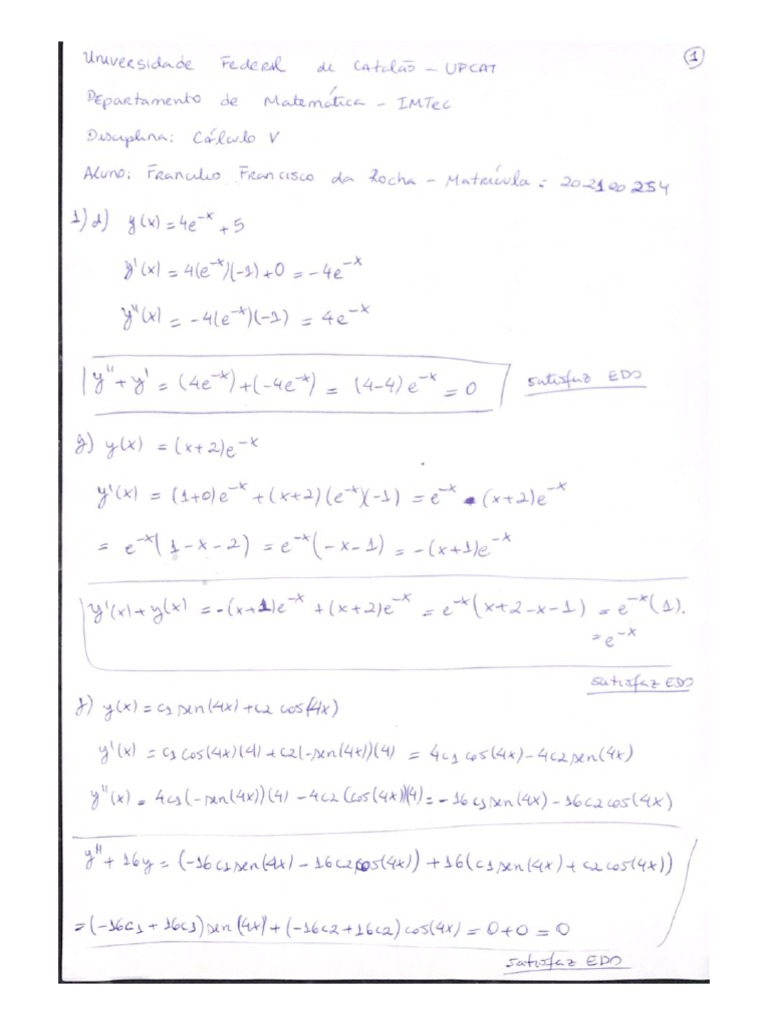 ①
Universidade Federal de Catalão – UFCAT
Departamento de Matemática – IMTec
Disciplina: Cálculo V
Aluno: Franculio Francisco da Rocha – Matrícula: 202100254
1) d) y(x) = 4e^-x + 5
y'(x) = 4(e^-x)(-1) + 0 = -4e^-x
y''(x) = -4(e^-x)(-1) = 4e^-x
y'' + y' = (4e^-x) + (-4e^-x) = (4-4)e^-x = 0 satisfaz EDO
g) y(x) = (x+2)e^-x
y'(x) = (1+0)e^-x + (x+2)(e^-x)(-1) = e^-x - (x+2)e^-x
= e^-x(1-x-2) = e^-x(-x-1) = -(x+1)e^-x
y'(x) + y(x) = -(x+1)e^-x + (x+2)e^-x = e^-x(x+2-x-1) = e^-x(1).
= e^-x
satisfaz EDO
j) y(x) = c1 sen(4x) + c2 cos(4x)
y'(x) = c1 cos(4x)(4) + c2(-sen(4x))(4) = 4c1 cos(4x) - 4c2 sen(4x)
y''(x) = 4c1(-sen(4x))(4) - 4c2(cos(4x))(4) = -16c1 sen(4x) - 16c2 cos(4x)
y'' + 16y = (-16c1 sen(4x) - 16c2 cos(4x)) + 16(c1 sen(4x) + c2 cos(4x))
= (-16c1 + 16c1) sen(4x) + (-16c2 + 16c2) cos(4x) = 0 + 0 = 0
satisfaz EDO